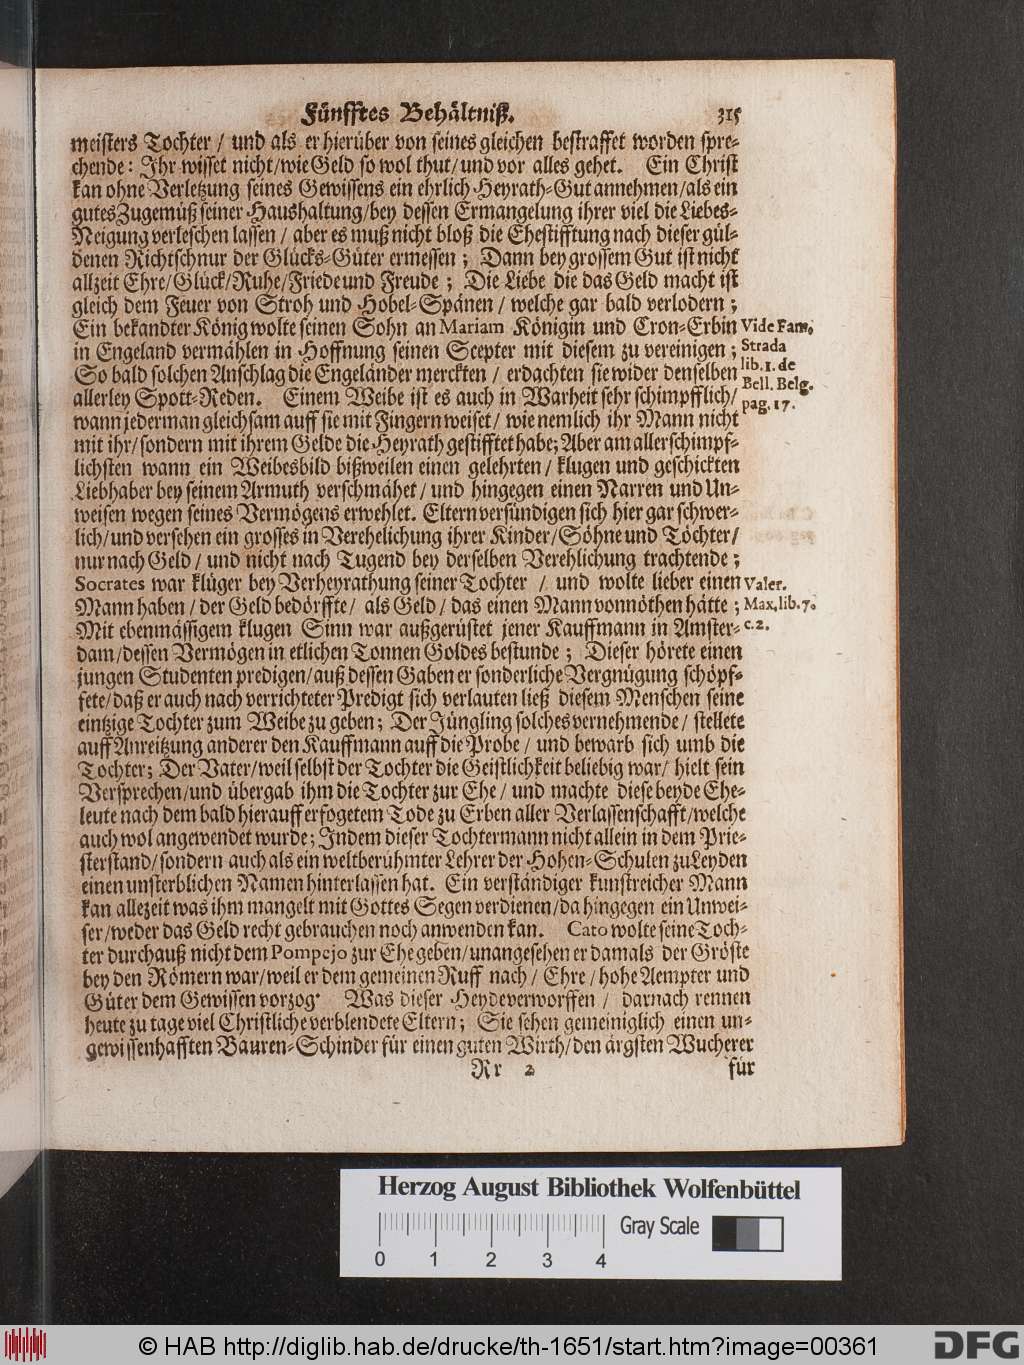 Fünfftes Behältniß. 315
meisters Tochter / und als er hierüber von seines gleichen bestraffet worden spre-
chende: Ihr wisset nicht / wie Geld so wol thut / und vor alles gehet. Ein Christ
kan ohne Verletzung seines Gewissens ein ehrlich Heyrath-Gut annehmen / als ein
gutes Zugemüß seiner Haushaltung / bey dessen Ermangelung ihrer viel die Liebes-
Neigung verleschen lassen / aber es muß nicht bloß die Ehestifftung nach dieser gül-
denen Richtschnur der Glücks-Güter ermessen ; Dann bey grossem Gut ist nicht
allzeit Ehre / Glück / Ruhe / Friede und Freude ; Die Liebe die das Geld macht ist
gleich dem Feuer von Stroh und Hobel-Spänen / welche gar bald verlodern ;
Ein bekandter König wolte seinen Sohn an Mariam Königin und Cron-Erbin
in Engeland vermählen in Hoffnung seinen Scepter mit diesem zu vereinigen ;
So bald solchen Anschlag die Engeländer merckten / erdachten sie wider denselben
allerley Spott-Reden. Einem Weibe ist es auch in Warheit sehr schimpfflich /
wann jederman gleichsam auff sie mit Fingern weiset / wie nemlich ihr Mann nicht
mit ihr / sondern mit ihrem Gelde die Heyrath gestifftet habe; Aber am allerschimpf-
lichsten wann ein Weibesbild bißweilen einen gelehrten / klugen und geschickten
Liebhaber bey seinem Armuth verschmähet / und hingegen einen Narren und Un-
weisen wegen seines Vermögens erwehlet. Eltern versündigen sich hier gar schwer-
lich / und versehen ein grosses in Verehelichung ihrer Kinder / Söhne und Töchter /
nur nach Geld / und nicht nach Tugend bey derselben Verehlichung trachtende ;
Socrates war klüger bey Verheyrathung seiner Tochter / und wolte lieber einen
Mann haben / der Geld bedörffte / als Geld / das einen Mann vonnöthen hätte ;
Mit ebenmässigem klugen Sinn war außgerüstet jener Kauffmann in Amster-
dam / dessen Vermögen in etlichen Tonnen Goldes bestunde ; Dieser hörete einen
jungen Studenten predigen / auß dessen Gaben er sonderliche Vergnügung schöpf-
fete / daß er auch nach verrichteter Predigt sich verlauten ließ diesem Menschen seine
eintzige Tochter zum Weibe zu geben ; Der Jüngling solches vernehmende / stellete
auff Anreitzung anderer den Kauffmann auff die Probe / und bewarb sich umb die
Tochter ; Der Vater / weil selbst der Tochter die Geistlichkeit beliebig war / hielt sein
Versprechen / und übergab ihm die Tochter zur Ehe / und machte diese beyde Ehe-
leute nach dem bald hierauff erfogetem Tode zu Erben aller Verlassenschafft / welche
auch wol angewendet wurde ; Indem dieser Tochtermann nicht allein in dem Prie-
sterstand / sondern auch als ein weltberühmter Lehrer der Hohen-Schulen zu Leyden
einen unsterblichen Namen hinterlassen hat. Ein verständiger kunstreicher Mann
kan allezeit was ihm mangelt mit Gottes Segen verdienen / da hingegen ein Unwei-
ser / weder das Geld recht gebrauchen noch anwenden kan. Cato wolte seine Toch-
ter durchauß nicht dem Pompejo zur Ehe geben / unangesehen er damals der Gröste
bey den Römern war / weil er dem gemeinen Ruff nach / Ehre / hohe Aempter und
Güter dem Gewissen vorzog. Was dieser Heyde verworffen / darnach rennen
heute zu tage viel Christliche verblendete Eltern ; Sie sehen gemeiniglich einen un-
gewissenhafften Bauren-Schinder für einen guten Wirth / den ärgsten Wucherer
Rr 2 für
Vide Fam.
Strada
lib. 1. de
Bell. Belg.
pag. 17.
Valer.
Max. lib. 7.
c. 2.
Herzog August Bibliothek Wolfenbüttel
0 1 2 3 4
Gray Scale
© HAB http://diglib.hab.de/drucke/th-1651/start.htm?image=00361
DFG